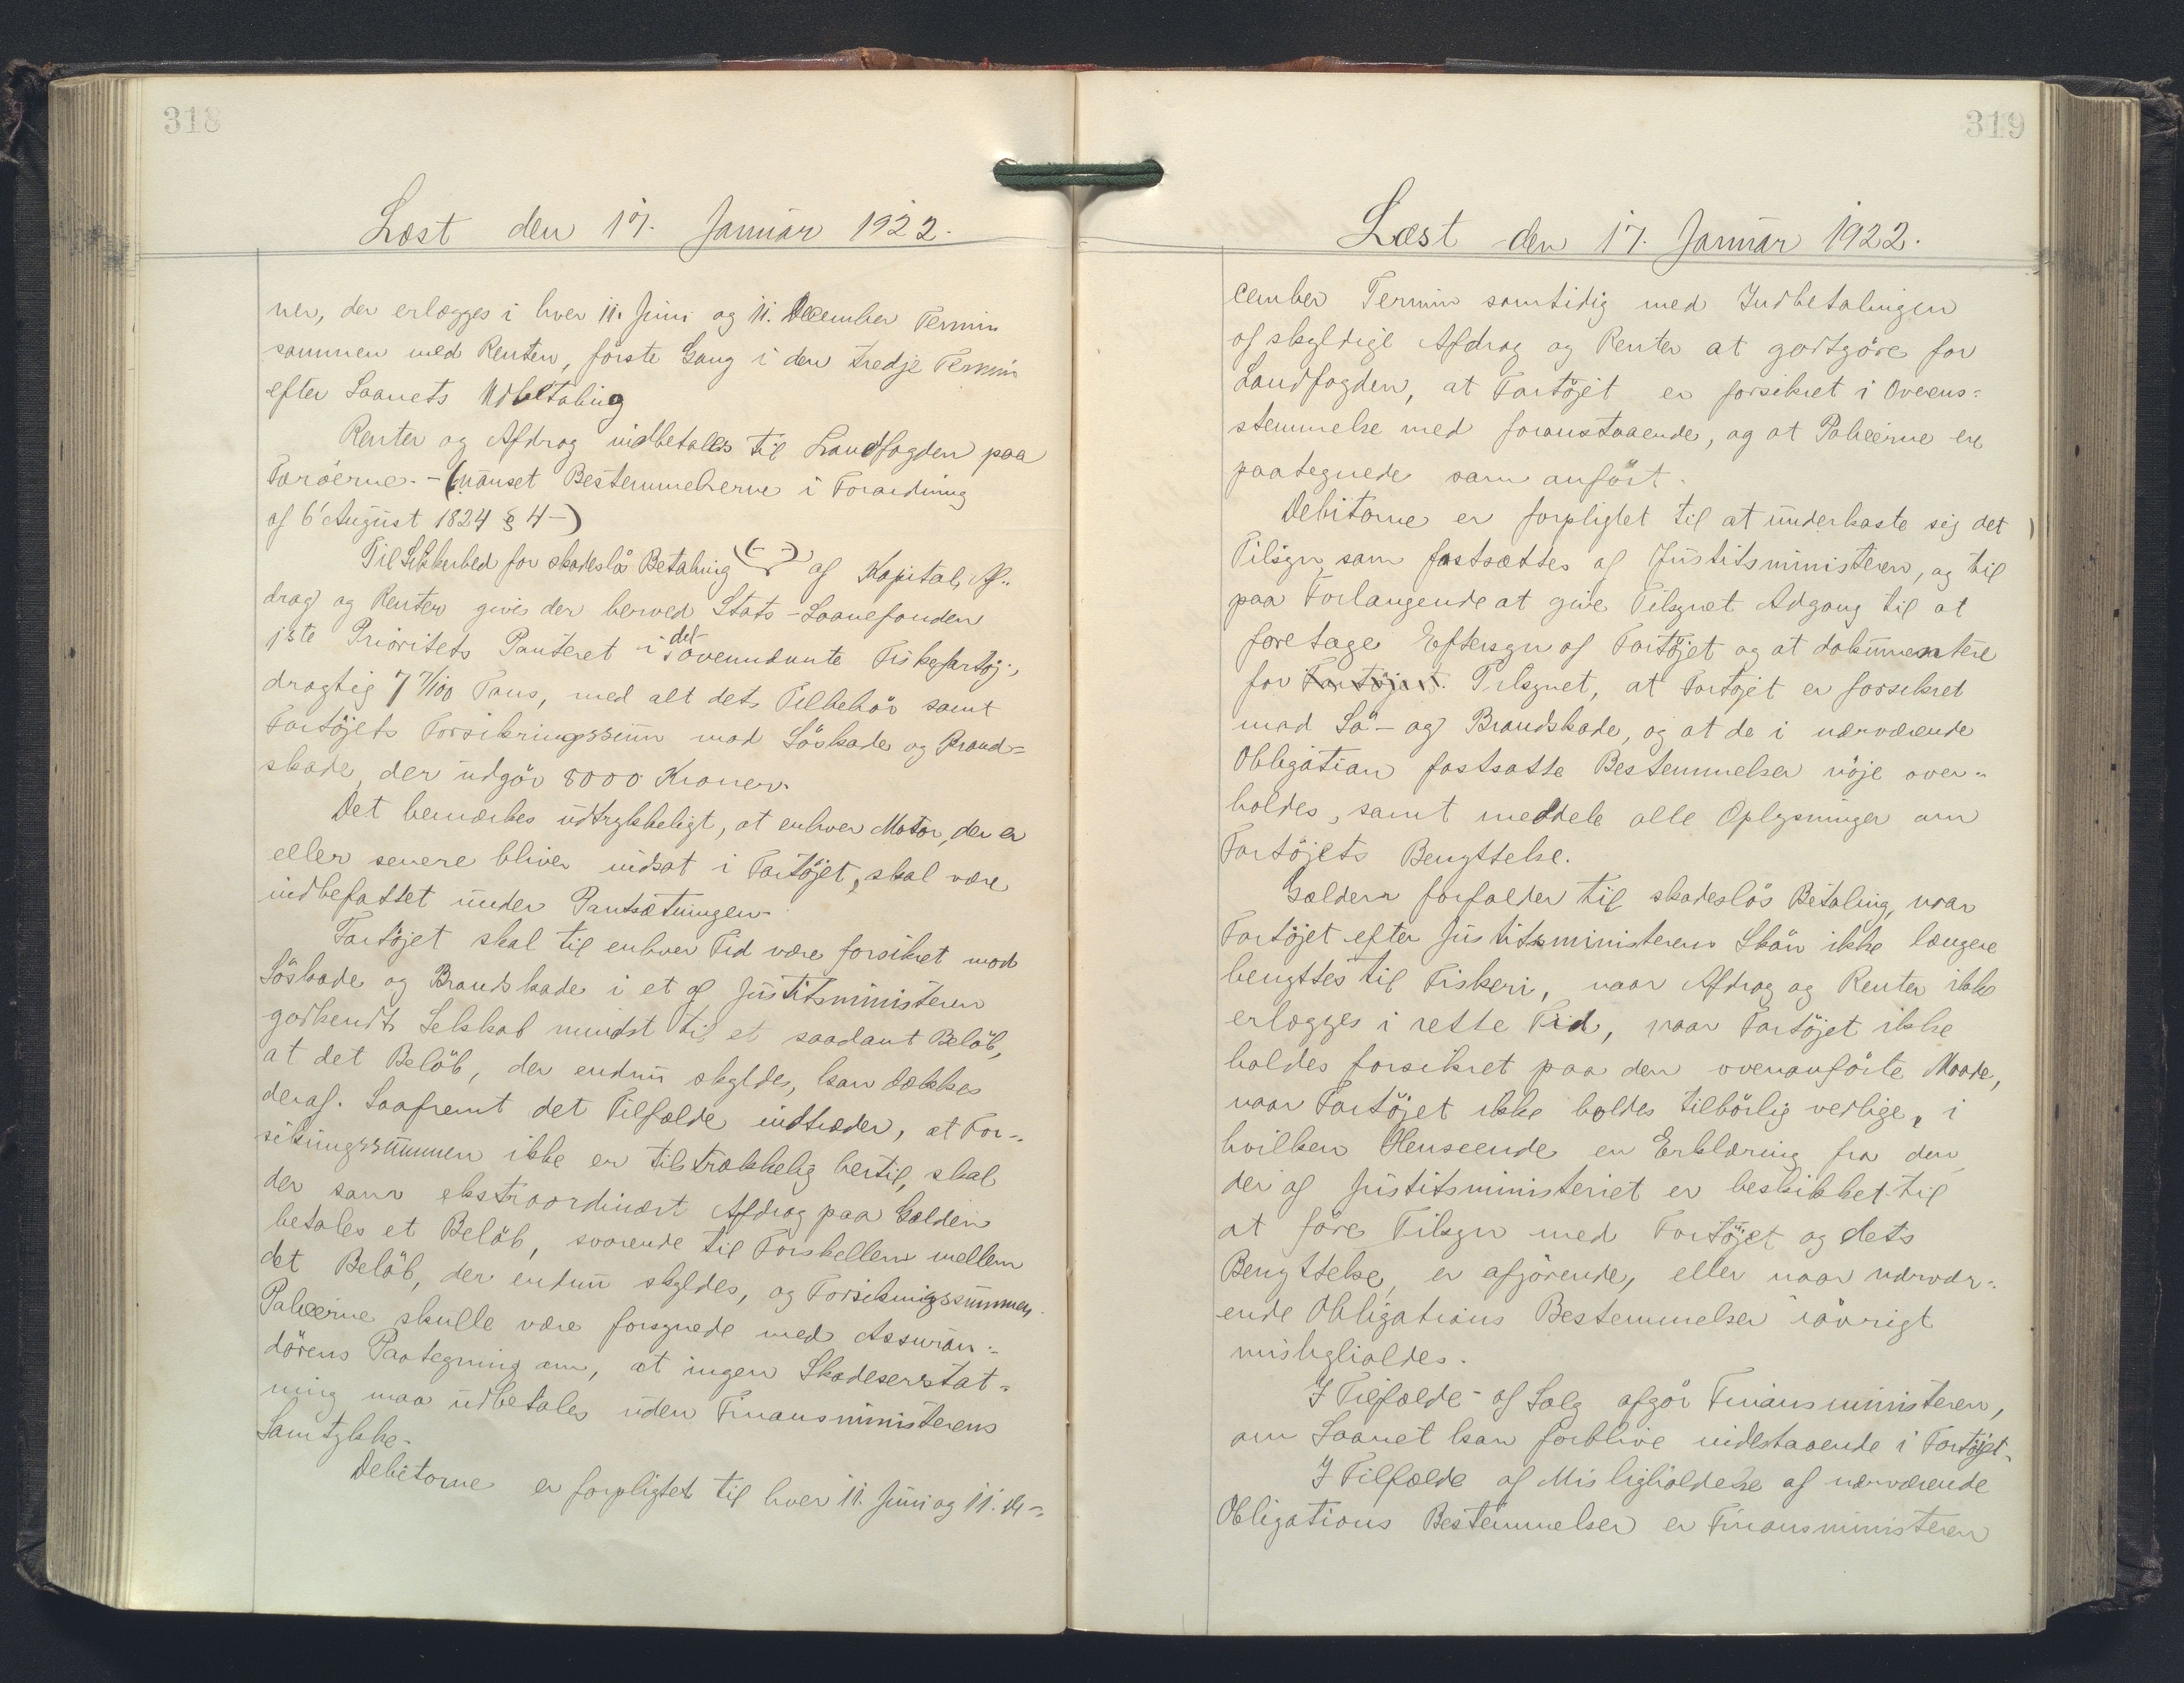 318
Læst den 17. Januar 1922.
ner, der erlægges i hver 11. Juni og 11. December Termin
sammen med Renten, förste Gang i den tredje Termin
efter Laanets Udbetaling
Renter og Afdrag indbetales til Landfogden paa
Færöerne. - (uanset Bestemmelserne i Forordning
af 6' August 1824 § 4-)
Til Sikkerhed for skadeslös Betaling (- -) af Kapital, Af-
drag og Renter gives der herved Stats-Laanefonden
1ste Prioritets Panteret i det ovennævnte Fiskefartöj,
drægtig 7 7/100 Tons, med alt dets Tilbehör samt
Fartöjets Forsikringssum mod Söskade og Brand-
skade, der udgör 8000 Kroner.
Det bemærkes udtrykkeligt, at enhver Motor, der er
eller senere bliver indsat i Fartöjet, skal være
indbefattet under Pantsætningen.
Fartöjet skal til enhver Tid være forsikret mod
Söskade og Brandskade i et af Justitsministeren
godkendt Selskab mindst til et saadant Belöb,
at det Belöb, der endnu skyldes, kan dækkes
deraf. Saafremt det Tilfælde indtræder, at For-
sikringssummen ikke er tilstrækkelig hertil, skal
der som ekstraordinært Afdrag paa Gælden
betales et Belöb, svarende til Forskellen mellem
det Belöb, der endnu skyldes, og Forsikringssummen.
Policerne skulle være forsynede med Assuran-
dörens Paategning om, at ingen Skadeserstat-
ning maa udbetales uden Finansministerens
Samtykke.
Debitorne er forpligtet til hver 11. Juni og 11. De-
319
Læst den 17. Januar 1922.
cember Termin samtidig med Indbetalingen
af skyldige Afdrag og Renter at godtgöre for
Landfogden, at Fartöjet er forsikret i Overens-
stemmelse med foranstaaende, og at Policerne er
paategnede som anfört.
Debitorne er forpligtet til at underkaste sig det
Tilsyn, som fastsættes af Justitsministeren, og til
paa Forlangende at give Tilsynet Adgang til at
foretage Eftersyn af Fartöjet og at dokumentere
for Fartöjet. Tilsynet, at Fartöjet er forsikret
mod Sö- og Brandskade, og at de i nærværende
Obligation fastsatte Bestemmelser nöje over-
holdes, samt meddele alle Oplysninger om
Fartöjets Benyttelse.
Gælden forfalder til skadeslös Betaling, naar
Fartöjet efter Justitsministerens Skön ikke længere
benyttes til Fiskeri, naar Afdrag og Renter ikke
erlægges i rette Tid, naar Fartöjet ikke
holdes forsikret paa den ovenanförte Maade,
naar Fartöjet ikke holdes tilbörlig vedlige, i
hvilken Henseende en Erklæring fra den
der af Justitsministeriet er beskikket til
at före Tilsyn med Fartöjet og dets
Benyttelse, er afgörende, eller naar nærvær-
ende Obligations Bestemmelser iövrigt
misligholdes.
I Tilfælde af Salg afgör Finansministeren,
om Laanet kan forblive indestaaende i Fartöjet.
I Tilfælde af Misligholdelse af nærværende
Obligations Bestemmelser er Finansministeren